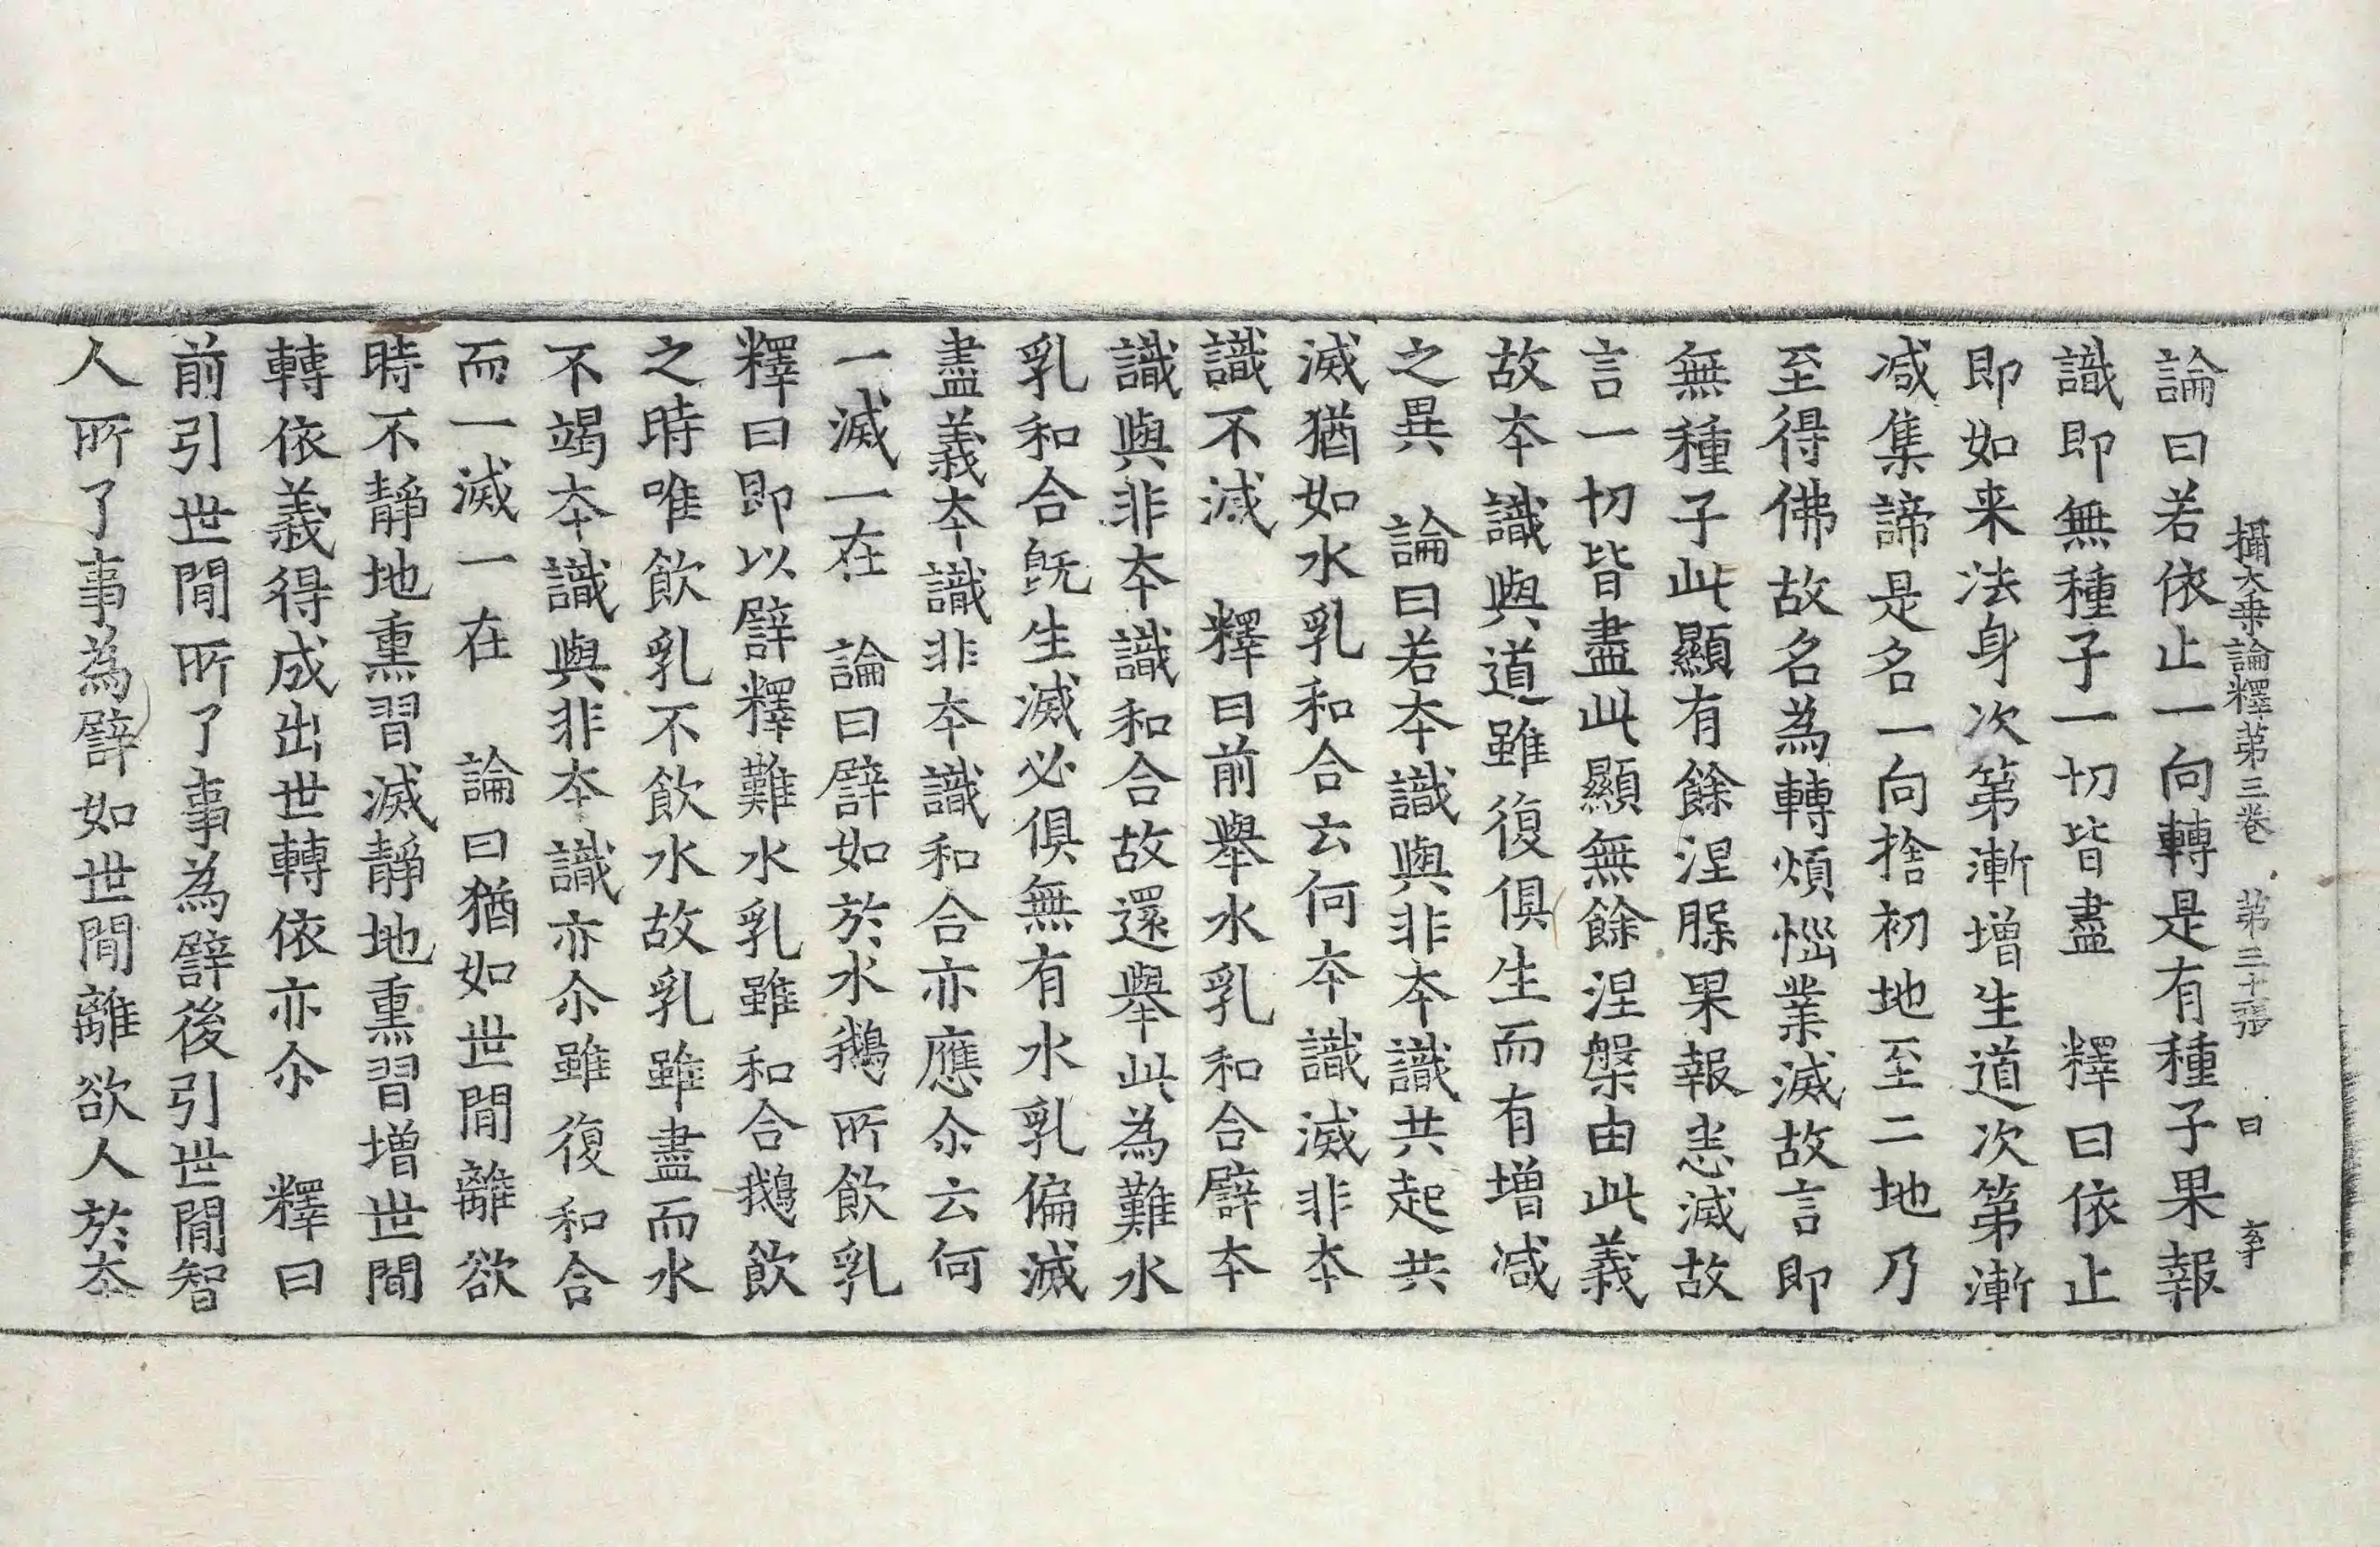 攝大乗論釋第三卷　第三十張　日　𡥉
論曰若依止一向轉是有種子果報
識即無種子一切皆盡　釋曰依止
即如来法身次第漸增生道次第漸
减集諦是名一向捨初地至二地乃
至得佛故名為轉煩惱業滅故言即
無種子此顯有餘涅脲果報恚滅故
言一切皆盡此顯無餘涅槃由此義
故夲識與道雖復俱生而有增减
之異　論曰若夲識與非夲識共起共
滅猶如水乳和合云何夲識滅非夲
識不滅　釋曰前舉水乳和合譬夲
識與非夲識和合故還舉此為難水
乳和合旣生滅必俱無有水乳偏滅
盡義夲識非夲識和合亦應尒云何
一滅一在　論曰譬如於水鵝所飮乳
釋曰即以譬釋難水乳雖和合鵝飮
之時唯飮乳不飮水故乳雖盡而水
不竭夲識與非夲識亦尒雖復和合
而一滅一在　論曰猶如世間離欲
時不靜地熏習滅靜地熏習增世間
轉依義得成出世轉依亦尒　釋曰
前引世間所了事為譬後引世間智
人所了事為譬如世間離欲人於夲